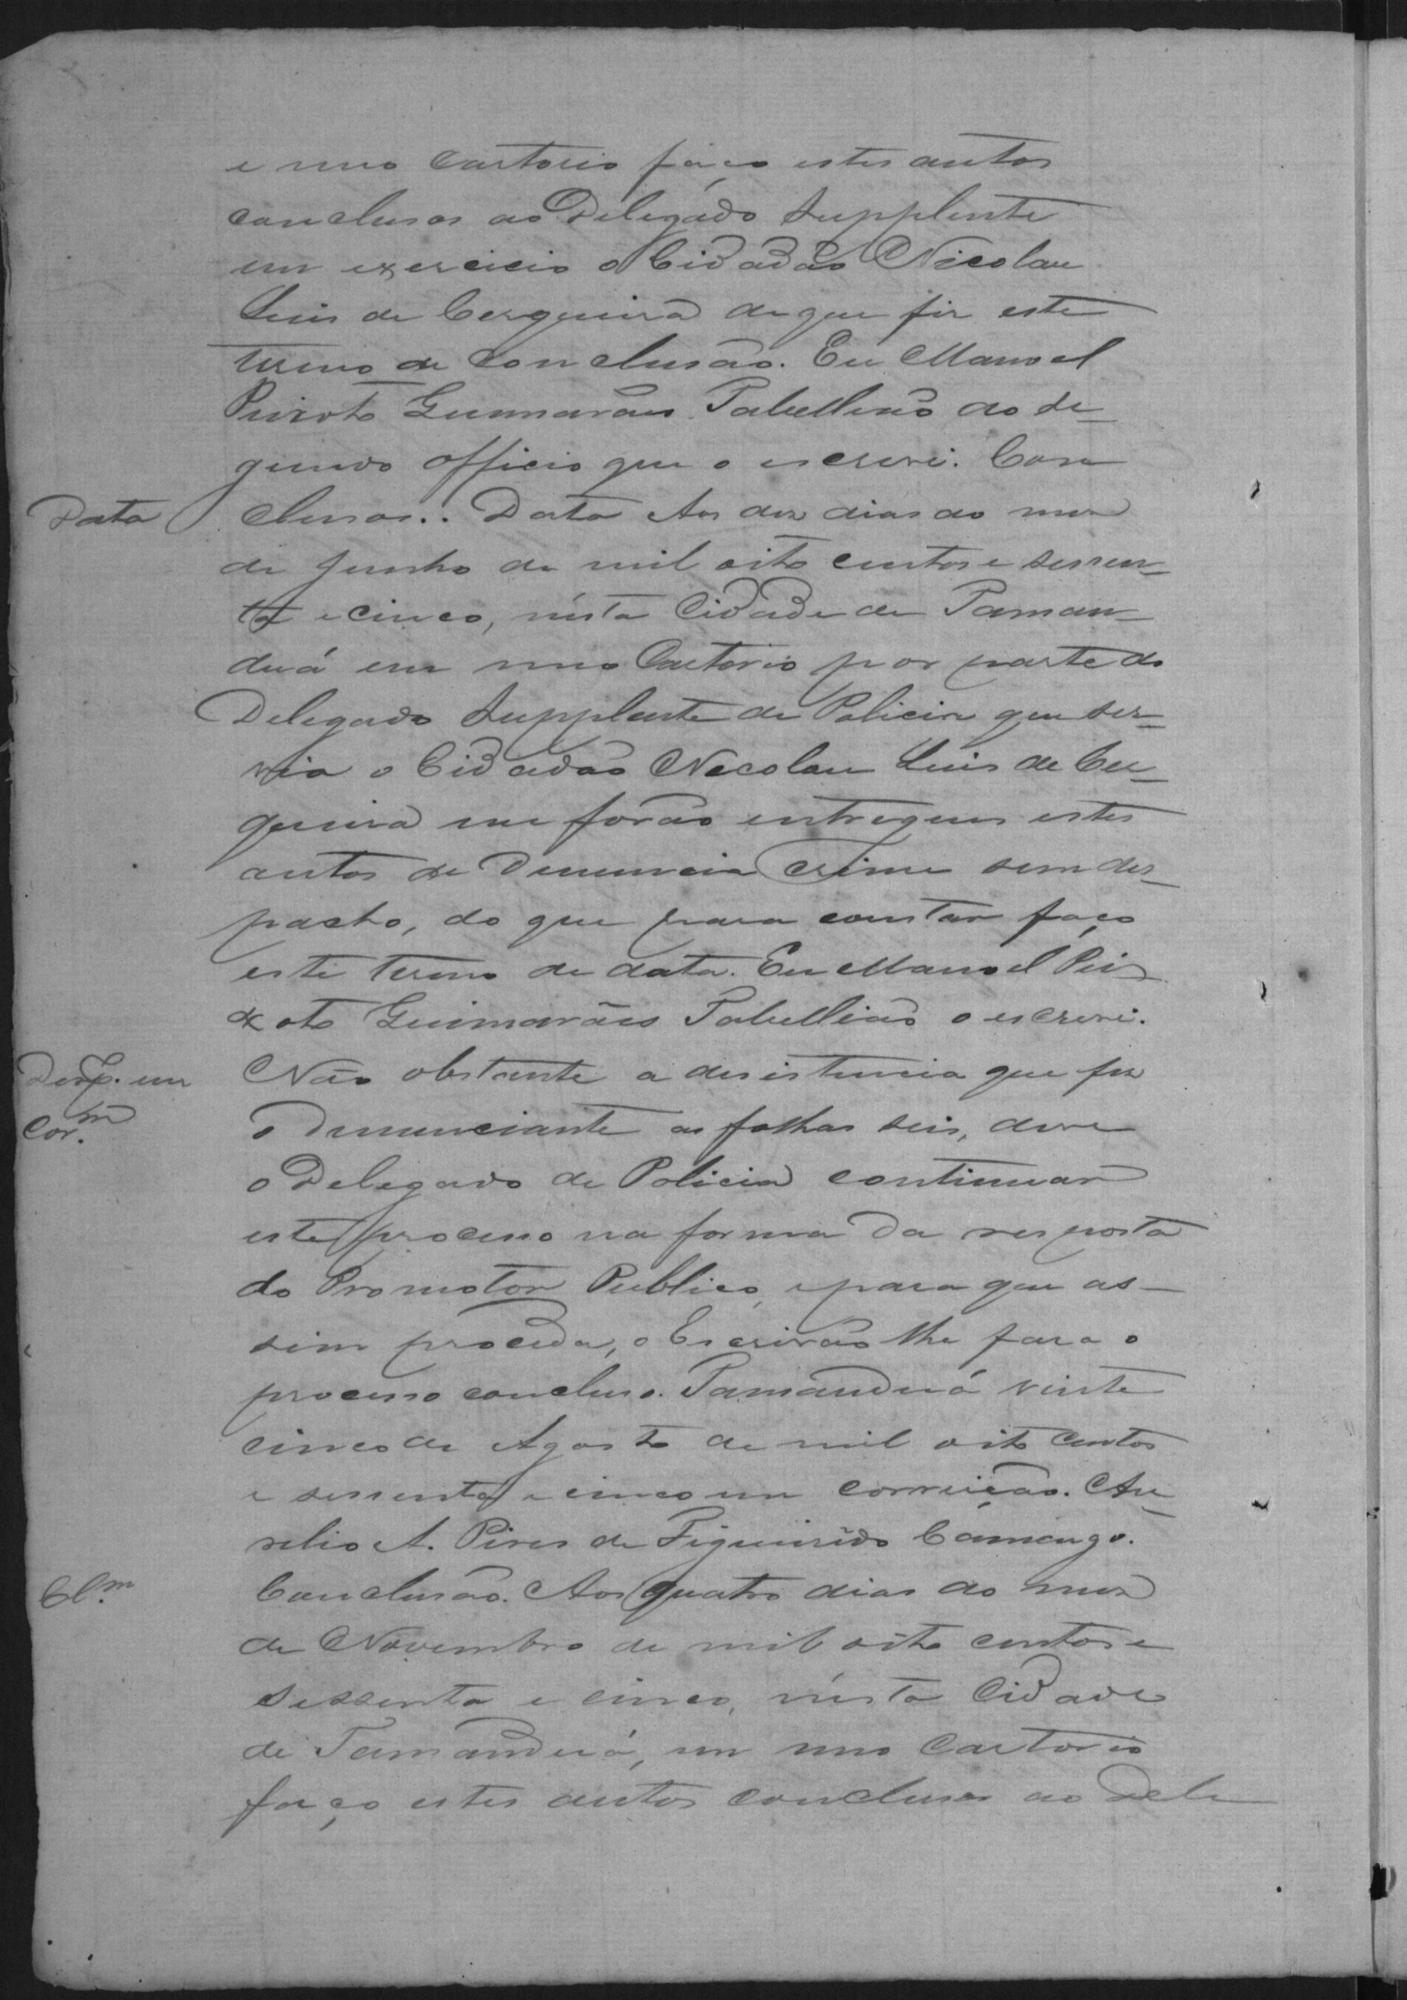 e meu Cartorio faço estes autos
conclusos ao Delegado Supplente
em exercicio o Cidadão Nicolau
Luis de Cerqueira de que fiz este
termo de conclusão. Eu Manoel
Peixoto Guimarães Tabellião do se-
gundo officio que o escrevi. Con
Data
clusos.. Data Aos dez dias do mez
de Junho de mil oito centos e sessen-
ta e cinco, nésta Cidade de Taman-
duá em meu Cartorio por parte do
Delegado Supplente de Policia que ser-
via o Cidadão Nicolau Luis de Cer-
queira me forão entregues estes
autos de Denuncia Crime sem des-
pacho, do que para constar faço
este termo de data. Eu Manoel Pei
xoto Guimarães Tabellião o escrevi.
Desp. em
Cor.m
Não obstante a desistencia que fez
o denunciante as folhas seis, deve
o Delegado de Policia continuar
este processo na forma da resposta
do Promotor Publico, e para que as-
sim proceda, o Escrivão lhe fara o
processo concluso. Tamanduá vinte
cinco de Agosto de mil oito centos
e sessenta e cinco em correição. Au-
relio A. Pires de Figueirêdo Camargo.
Cl.m
Conclusão. Aos quatro dias do mez
de Novembro de mil oito centos e
sessenta e cinco, nésta Cidade
de Tamanduá, em meu Cartorio
faço estes autos conclusos ao Dele